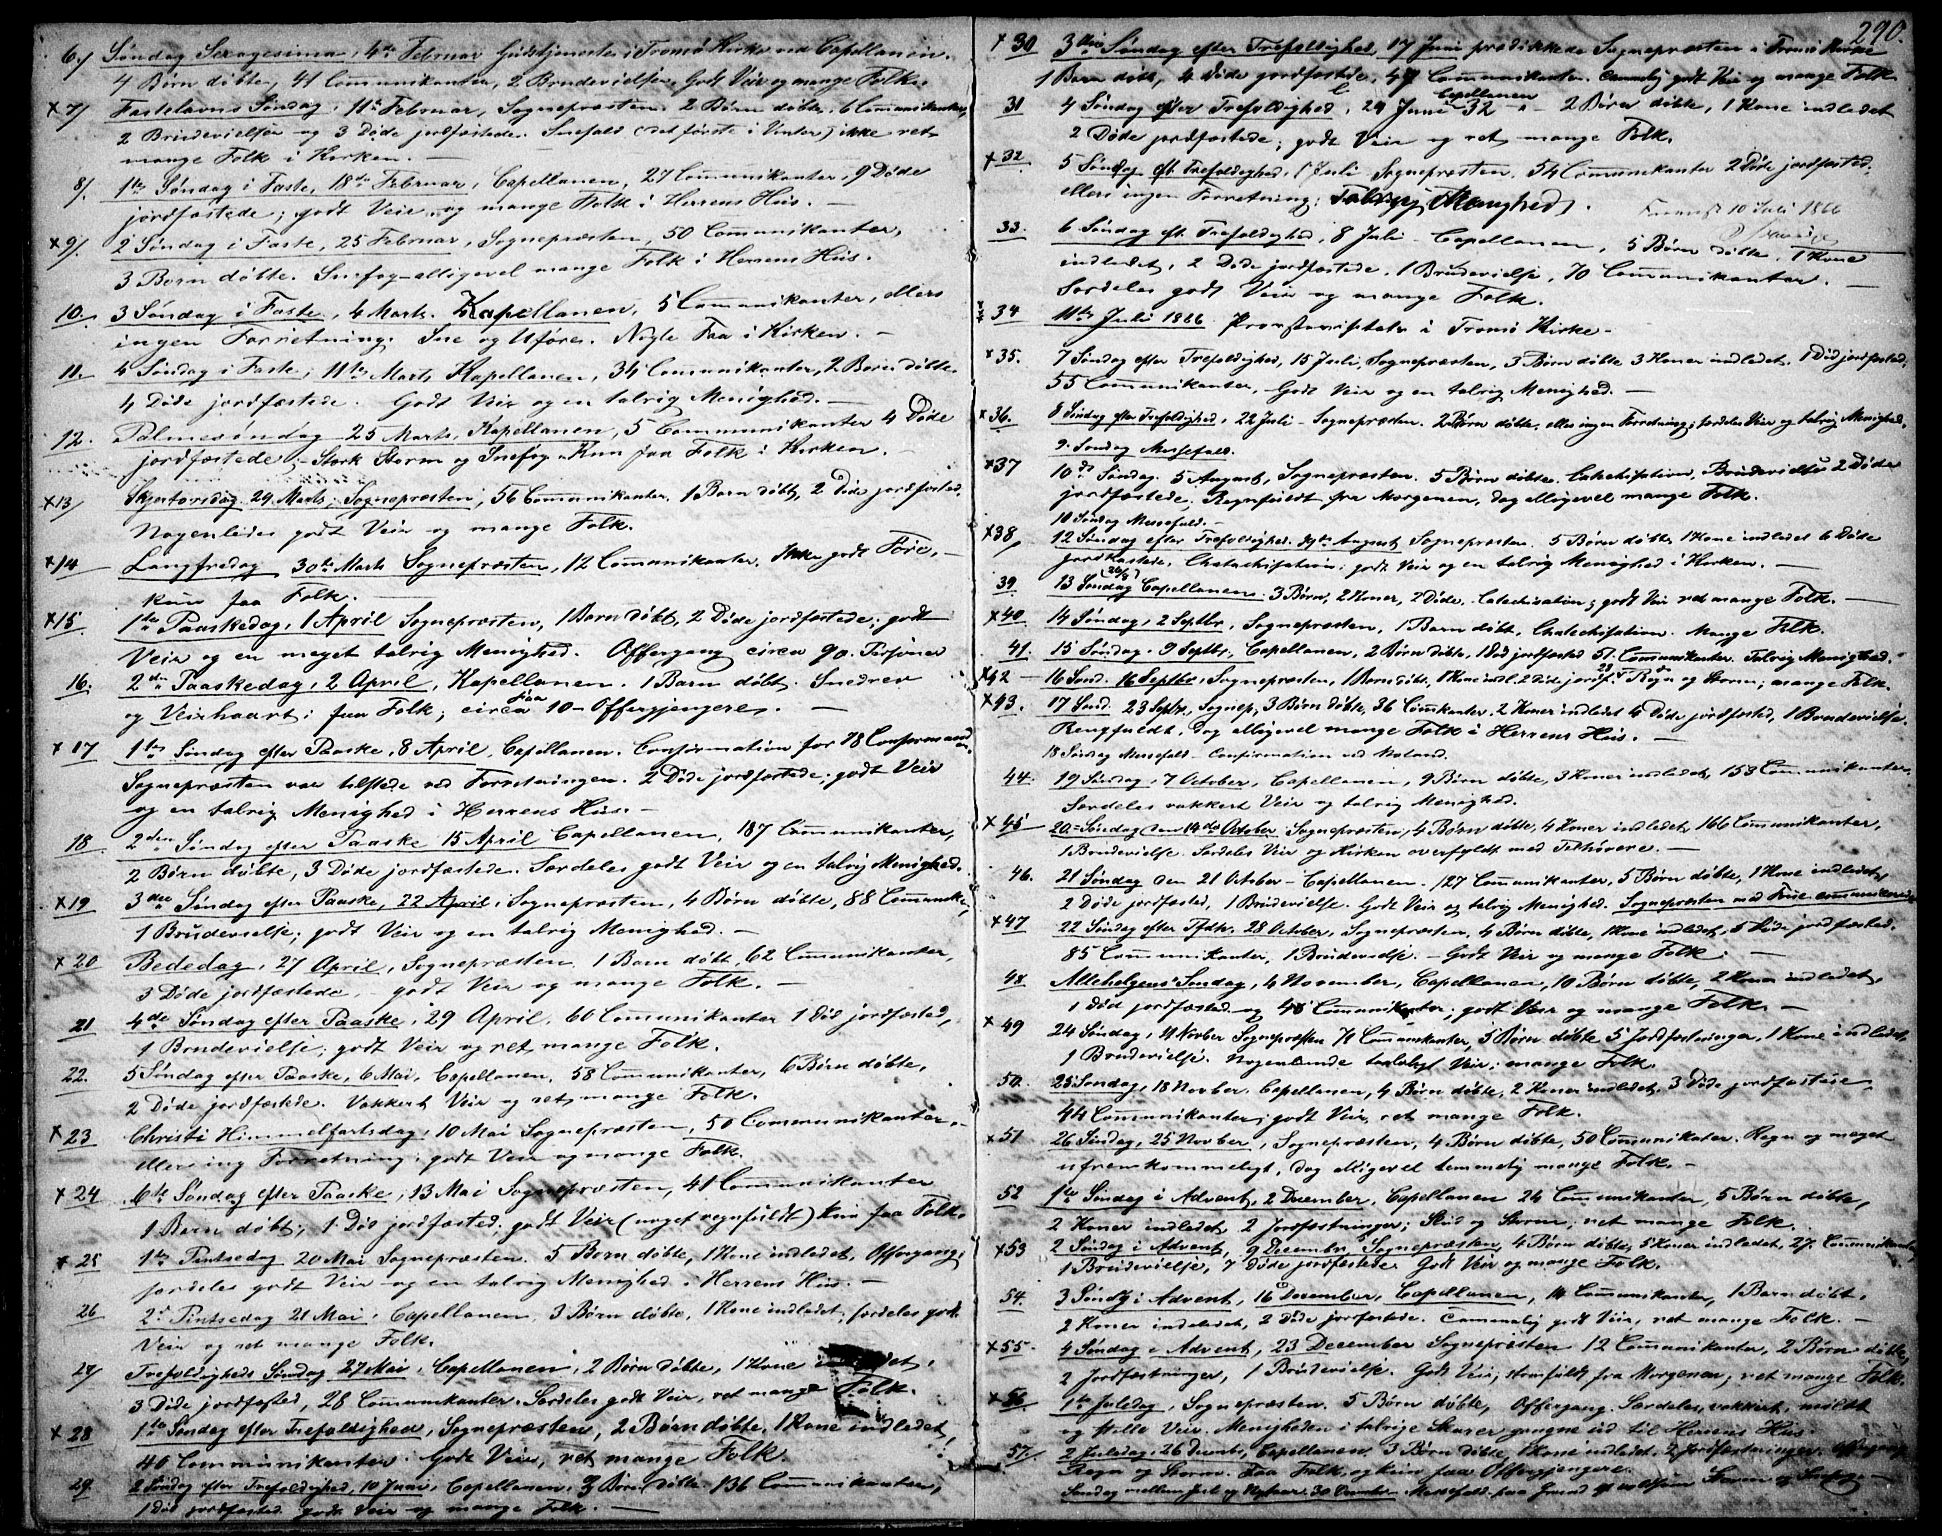 6./ Søndag Sexagesima, 4de Februar Gudstjeneste i Tromsø Kirke ved Capellanen.
4 Børn døbte, 41 Communikanter, 2 Brudevielser. Godt Veir og mange Folk.
x 7/ Fastelavns Søndag, 11te Februar, Sognepræsten. 2 Børn døbte, 6 Communikanter,
2 Brudevielser og 3 Døde jordfæstede. Snefald (det første i Vinter) ikke ret
mange Folk i Kirken. —
8/. 1te Søndag i Faste, 18de Februar, Capellanen, 27 Communikanter, 9 Døde
jordfæstede; godt Veir og mange Folk i Herrens Hus. —
x 9/. 2 Søndag i Faste, 25 Februar, Sognepræsten, 50 Communikanter,
3 Børn døbte. Snefog alligevel mange Folk i Herrens Hus.
10. 3 Søndag i Faste, 4 Marts. Kapellanen, 5 Communikanter, ellers
ingen Forretning. Sne og Uføre. Nogle Faa i Kirken. —
11. 4 Søndag i Faste, 11te Marts Kapellanen, 34 Communikanter, 2 Børn døbte
4 Døde jordfæstede. Godt Veir og en talrig Menighed. —
12. Palmesøndag 25 Marts, Kapellanen, 5 Communikanter 4 Døde
jordfæstede; Stærk Storm og Snefog. Kun faa Folk i Kirken. —
x 13/ Skjærtorsdag 29 Marts, Sognepræsten, 56 Communikanter, 1 Barn døbt, 2 Døde jordfæsted.
Nogenledes godt Veir og mange Folk.
x 14 Langfredag 30te Marts Sognepræsten, 12 Communikanter. Ikke godt Føre, —
kun faa Folk. —
x 15. 1ste Paaskedag, 1 April Sognepræsten, 1 Barn døbt, 2 Døde jordfæstede; godt
Veir og en meget talrig Menighed. Offergang circa 90. Personer
16. 2den Paaskedag, 2 April, Kapellanen. 1 Barn døbt. Snedrev
og Veirhaart; faa Folk; circa 10 Offergjengere. —
x 17 1te Søndag efter Paaske, 8 April, Capellanen. Confirmation for 78 Confirmand
Sognepræsten var tilstede ved Forretningen. 2 Døde jordfæstede; godt Veir
og en talrig Menighed i Herrens Hus. —
18 2den Søndag efter Paaske 15 April Capellanen, 187 Communikanter,
2 Børn døbte, 3 Døde jordfæstede. Særdeles godt Veir og en talrig Menighed.
x 19 3die Søndag efter Paaske, 22 April, Sognepræsten, 4 Børn døbte, 88 Communke,
1 Brudevielse; godt Veir og en talrig Menighed. —
x 20 Bededag, 27 April, Sognepræsten 1 Barn døbt, 62 Communikanter,
3 Døde jordfæstede, — godt Veir og mange Folk. —
21 4de Søndag efter Paaske, 29 April, 60 Communikanter 1 Død jordfæsted,
1 Brudevielse; godt Veir og ret mange Folk.
22. 5 Søndag efter Paaske, 6 Mai, Capellanen, 58 Communikanter, 6 Børn døbte,
2 Døde jordfæstede. Vakkert Veir og ret mange Folk.
x 23 Christi Himmelfartsdag, 10 Mai Sognepræsten, 50 Communikanter, —
ellers ing Forretning, godt Veir og mange Folk.
x 24 6te Søndag efter Paaske, 13 Mai Sognepræsten, 41 Communikanter
1 Barn døbt; 1 Død jordfæsted; godt Veir (noget regnfuldt) kun faa Folk.
x 25 1te Pintsedag 20 Mai Sognepræsten. 5 Børn døbte, 1 Kone indledet, Offergang;
særdeles godt Veir og en talrig Menighed i Herrens Hus. —
26 2d Pintsedag 21 Mai, Capellanen, 3 Børn døbte, 1 Kone indledet, særdeles godt
Veir og ret mange Folk.
27/ Trefoldigheds Søndag 27 Mai, Capellanen, 2 Børn døbte, 1 Kone indledet,
3 Døde jordfæsted, 28 Communikanter. Særdeles godt Veir, ret mange Folk.
x 28 1te Søndag efter Trefoldighed, Sognepræsten, 2 Børn døbte, 1 Kone indledet,
40 Communikanter. Godt Veir, ret mange Folk.
29. 2 Søndag efter Trefoldighed, 10 Juni, Capellanen, 3 Børn døbte. 136 Communikanter,
1 Død jordfæsted godt Veir og mange Folk. —
290.
x 30 3die Søndag efter Trefoldighed, 17 Juni prædikkede Sognepræsten i Tromsø Kirke
1 Barn døbt, 4 Døde jordfæstede, 47 Communikanter. Temmelig godt Veir og mange Folk
31 4 Søndag efter Trefoldighed, 24 Juni Capellanen 32 " 2 Børn døbte, 1 Kone indledet
2 Døde jordfæstede; godt Veir og ret mange Folk.
x 32. 5 Søndag eft Trefoldighed, 1 Juli Sognepræsten, 54 Communikanter 2 Døde jordfæsted,
ellers ingen Forretning; Talrig Menighed.
10 Juli 1866
33. 6 Søndag eft. Trefoldighed, 8 Juli — Capellanen, 5 Børn døbte, 1 Kone
indledet, 2 Døde jordfæstede, 1 Brudevielse, 70 Communikanter. —
Særdeles godt Veir og mange Folk.
x 34 11te Juli 1866 Provstevisitats i Tromsø Kirke —
x 35. 7 Søndag efter Trefoldighed, 15 Juli, Sognepræsten, 3 Børn døbte 3 Koner indledet, 1 Død jordfæsted,
55 Communikanter, Godt Veir og en talrig Menighed. —
x 36. 8 Søndag efter Trefoldighed, 22 Juli — Sognepræsten. 2 Børn døbte, ellers ingen Forretning; særdeles Veir og talrig Menighed.
9. Søndag Messefald.
x 37 10de Søndag, 5 August, Sognepræsten. 5 Børn døbte. Catechisation, Brudevielse 2 Døde
jordfæstede, Regnfuldt fra Morgenen, dog alligevel mange Folk.
10 Søndag Messefald. —
x 38/ 12 Søndag efter Trefoldighed. 19te August Sognepræsten. 5 Børn døbte 1 Kone indledet 6 Døde
jordfæstede, Chatechisation; godt Veir og en talrig Menighed i Kirken. —
39. 13 Søndag 26/8 Capellanen 3 Børn, 2 Koner, 2 Døde. Catechisation; godt Veir ret mange Folk. —
x 40 14 Søndag, 2 Septbr, Sognepræsten, 1 Barn døbt, Chatechisation. Mange Folk.
41. 15 Søndag, 9 Septbr, Capellanen, 2 Børn døbte, 1 Død jordfæsted 51 Communikanter. Talrig Menighed.
x 42 — 16 Sønd. 16 Septbr, Sognepræsten, 1 Barn døbt, 1 Kone indl. 2 Døde jordf. Regn og Storm; mange Folk.
x 43. 17 Sønd. 23 Septr, Sognep, 3 Børn døbte, 36 Commkanter, 2 Koner indledet 4 Døde jordfæsted, 1 Brudevielse.
Rengfuldt, dog alligevel mange Folk i Herrens Hus. —
18 Søndag Messefald — Confirmation ved
44. 19 Søndag, 7 October, Capellanen, 9 Børn døbte, 3 Koner indledet, 153 Communikanter,
Særdeles vakkert Veir og talrig Menighed.
x 45 20 — Søndag den 14de October Sognepræsten, 4 Børn døbte, 4 Koner indledet, 166 Communikanter,
1 Brudevielse. Særdeles Veir og Kirken overfyldt med Tilhørere. —
46. 21 Søndag den 21 October — Capellanen. 127 Communikanter, 5 Børn døbte, 1 Kone indledet,
2 Døde jordfæsted, 1 Brudevielse. Godt Veir og talrig Menighed. Sognepræsten med Frue communicerede
x 47 22 Søndag efter Tfdh. 28 October, Sognepræsten, 4 Børn døbte, 1 Kone indledet, 5 Døde jordfæsted.
85 Communikanter, 1 Brudevielse. — Godt Veir og mange Folk. —
48. Allehelgens Søndag, 4 November, Capellanen, 10 Børn døbte, 2 Koner indledet,
1 Død jordfæsted og 48 Communikanter; godt Veir og mange Folk. —
x 49 24 Søndag, 11 Novber Sognepræsten 71 Communikanter, 3 Børn døbte 5 Jordfæstninger, 1 Kone indledet,
1 Brudevielse. Nogenlunde taaleligt Veir; mange Folk.
50. 25 Søndag, 18 Novber. Capellanen, 4 Børn døbte, 2 Koner indledet, 3 Døde jordfæstede,
44 Communikanter; godt Veir, ret mange Folk.
x 51 26 Søndag, 25 Novber, Sognepræsten, 4 Børn døbte, 50 Communikanter. Regn og meget
ufremkommeligt, dog alligevel temmelig mange Folk. —
52 1te Søndag i Advent, 2 December, Capellanen 26 Communikanter, 5 Børn døbte,
2 Koner indledet, 2 Jordfæstninger; Slud og Storm, ret mange Folk.
x 53 2 Søndag i Advent, 9 December Sognepræsten, 4 Børn døbte, 5 Koner indledet, 27. Communikanter
1 Brudevielse, 7 Døde jordfæstede Godt Veir og mange Folk.
54. 3 Søndag i Advent, 16 December, Capellanen, 14 Communikanter, 1 Barn døbt,
2 Koner indledet, 2 Døde jordfæstede. Temmelig godt Veir, ret mange Folk. —
x 55 — 4 Søndag i Advent, 23 December Sognepræsten 12 Communikanter, 2 Børn døbte,
2 Jordfæstninger, 1 Brudevielse. Godt Veir, stormfuldt fra Morgenen, ret mange Folk.
x 56 1te Juledag, Sognepræsten. 5 Børn døbte, Offergang. Særdeles vakkert, mildt
og stille Veir. Menigheden i talrige Skarer gangne ind til Herrens Hus.
57/ 2 Juledag, 26 Decembr, Capellanen 3 Børn døbte, 1 Kone indledet. 2 Jordfæstninger. Offergang
Regn og Storm. Faa Folk, og kun faa Offergjengere.
Søndag mellem Jul og Nytaar 30 December Messefald paa Grund af voldsom Storm og Snefog. —